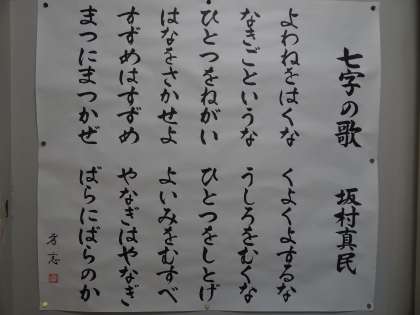 七字の歌 坂村真民
よわねをはくな くよくよするな
なきごというな うしろをむくな
ひとつをねがい ひとつをしとげ
はなをさかせよ よいみをむすべ
すずめはすずめ やなぎはやなぎ
まつにまつかぜ ばらにばらのか